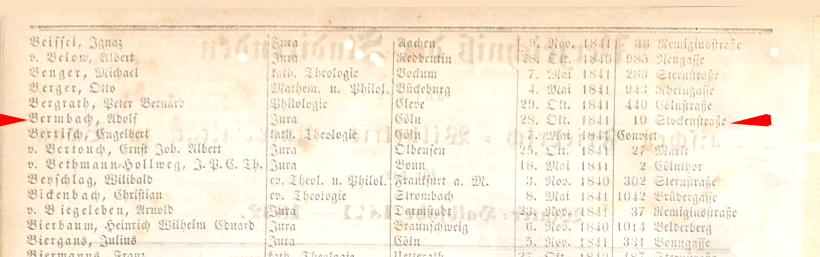 Beissel, Ignaz Jura Aachen 9. Nov. 1841 36 Remigiusstraße
v. Below, Albert Jura Reddentin 28. Okt. 1840 985 Neugasse
Benger, Michael kath. Theologie Bochum 7. Mai 1841 289 Sternstraße
Berger, Otto Mathem. u. Philol. Bückeburg 4. Mai 1841 943 Rheingasse
Bergrath, Peter Bernard Philologie Cleve 29. Okt. 1841 440 Cölnstraße
Bermbach, Adolf Jura Cöln 28. Okt. 1841 10 Stockenstraße
Bertisch, Engelbert kath. Theologie Cöln 7. Mai 1841 Convict
v. Bertouch, Ernst Joh. Albert Jura Olbensen 25. Okt. 1841 27 Markt
v. Bethmann-Hollweg, J. P. C. Th. Jura Bonn 18. Mai 1841 2 Cölnthor
Beyschlag, Wilibald ev. Theol. u. Philol. Frankfurt a. M. 3. Nov. 1840 302 Sternstraße
Bickenbach, Christian ev. Theologie Strombach 8. Mai 1841 1042 Brüdergasse
v. Biegeleben, Arnold Jura Darmstadt 23. Nov. 1841 37 Remigiusstraße
Bierbaum, Heinrich Wilhelm Eduard Jura Braunschweig 6. Nov. 1840 1014 Belderberg
Biergans, Julius Jura Cöln 5. Nov. 1841 331 Bonngasse
Biermanns, Franz kath. Theologie